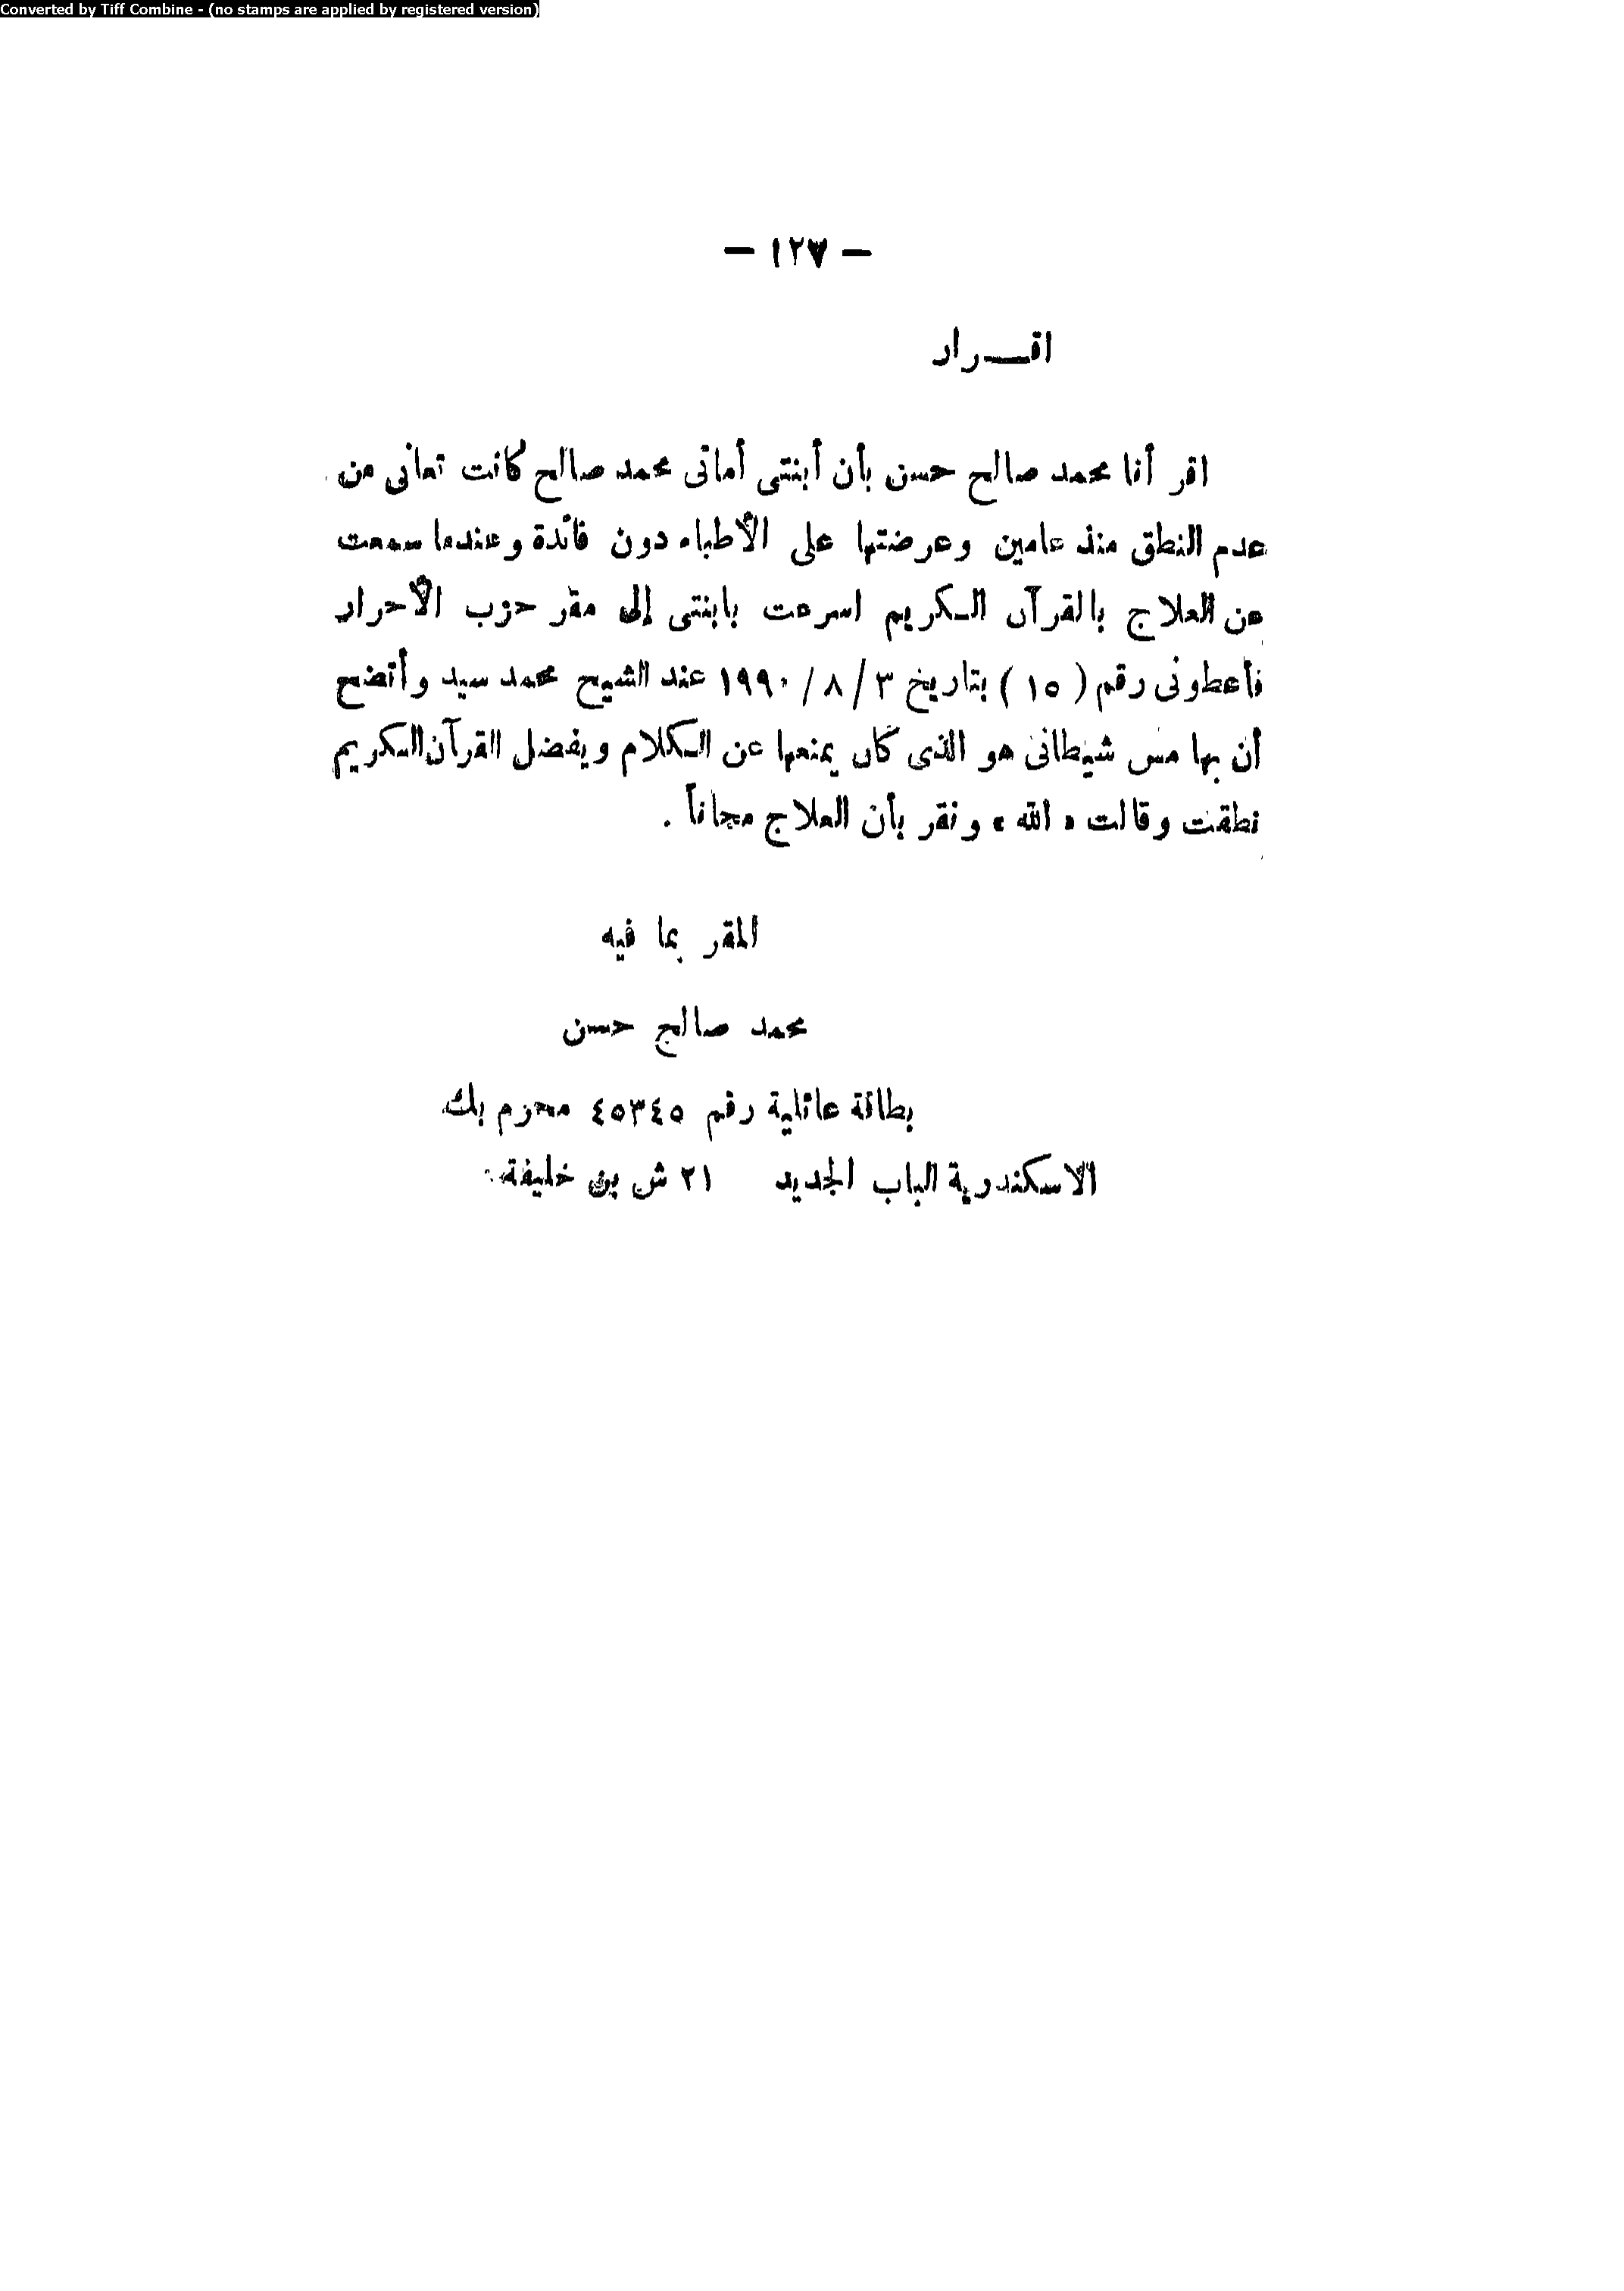 Converted by Tiff Combine - (no stamps are applied by registered version)
— ١٢٧ —
اقــرار
اقر أنا محمد صالح حسن بأن أبنتى أمانى محمد صالح كانت تعانى من
عدم النطق منذ عامين وعرضتها على الأطباء دون فائدة وعندما سمعت
عن العلاج بالقرآن الكريم اسرعت بابنتى إلى مقر حزب الأحرار
فأعطونى رقم ( ١٥ ) بتاريخ ٣ / ٨ / ١٩٩٠ عند الشيخ محمد سيد وأتضح
أن بها مس شيطانى هو الذى كان يمنعها عن الكلام ويفضل القرآن الكريم
نطقت وقالت « الله » ونقر بأن العلاج مجاناً .
المقر بما فيه
محمد صالح حسن
بطاقة عائلية رقم ٤٥٣٤٥ محرم بك
الاسكندرية الباب الجديد ٢١ ش بن خليفة